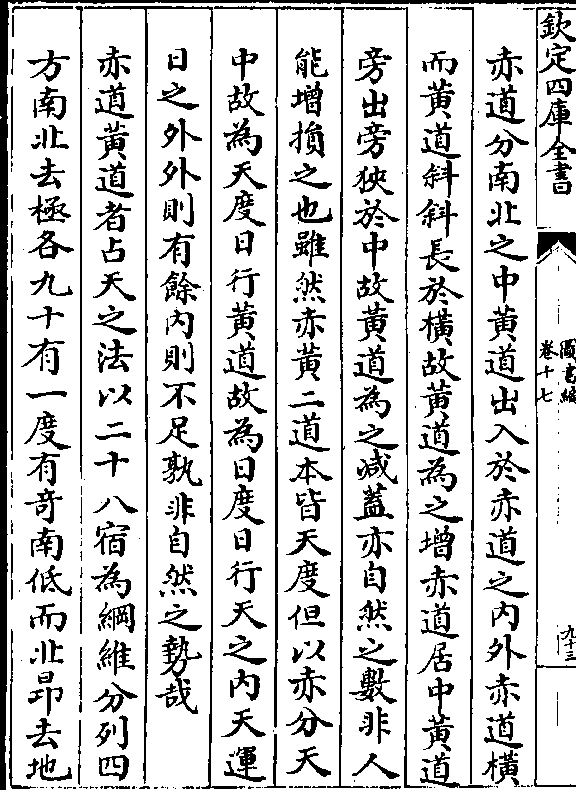 欽定四庫全書
圖書編
卷十七
九十三
赤道分南北之中黃道出入於赤道之内外赤道橫
而黃道斜斜長於橫故黃道為之增赤道居中黃道
旁出旁狹於中故黃道為之減蓋亦自然之數非人
能增損之也雖然赤黃二道本皆天度但以赤分天
中故為天度日行黃道故為日度日行天之内天運
日之外外則有餘内則不足孰非自然之勢哉
赤道黃道者占天之法以二十八宿為綱維分列四
方南北去極各九十有一度有奇南低而北昂去地